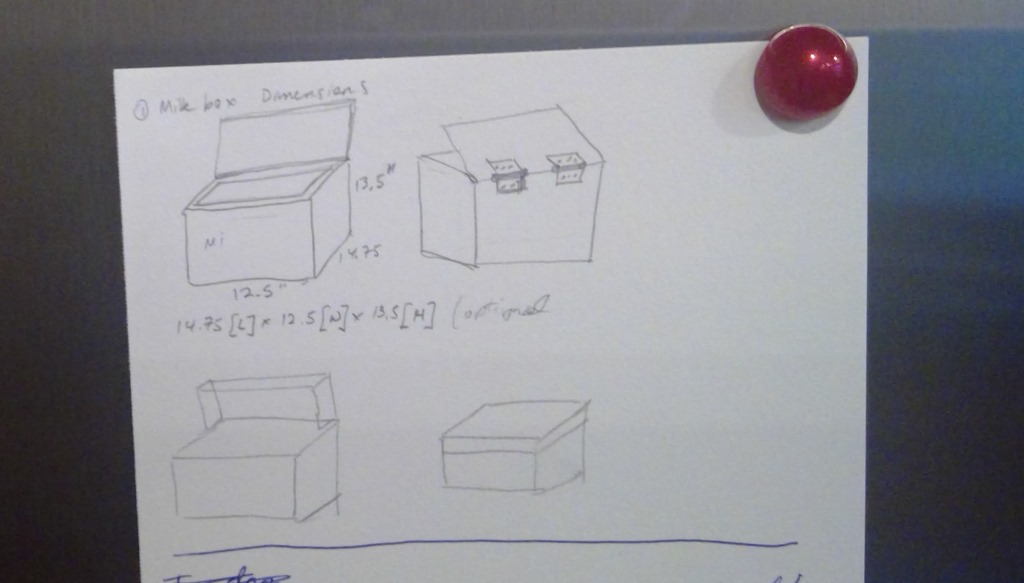 ① Milk box Dimensions
13.5"
Mi
14.75
12.5"
14.75 [L] x 12.5 [W] x 13.5 [H] (optional